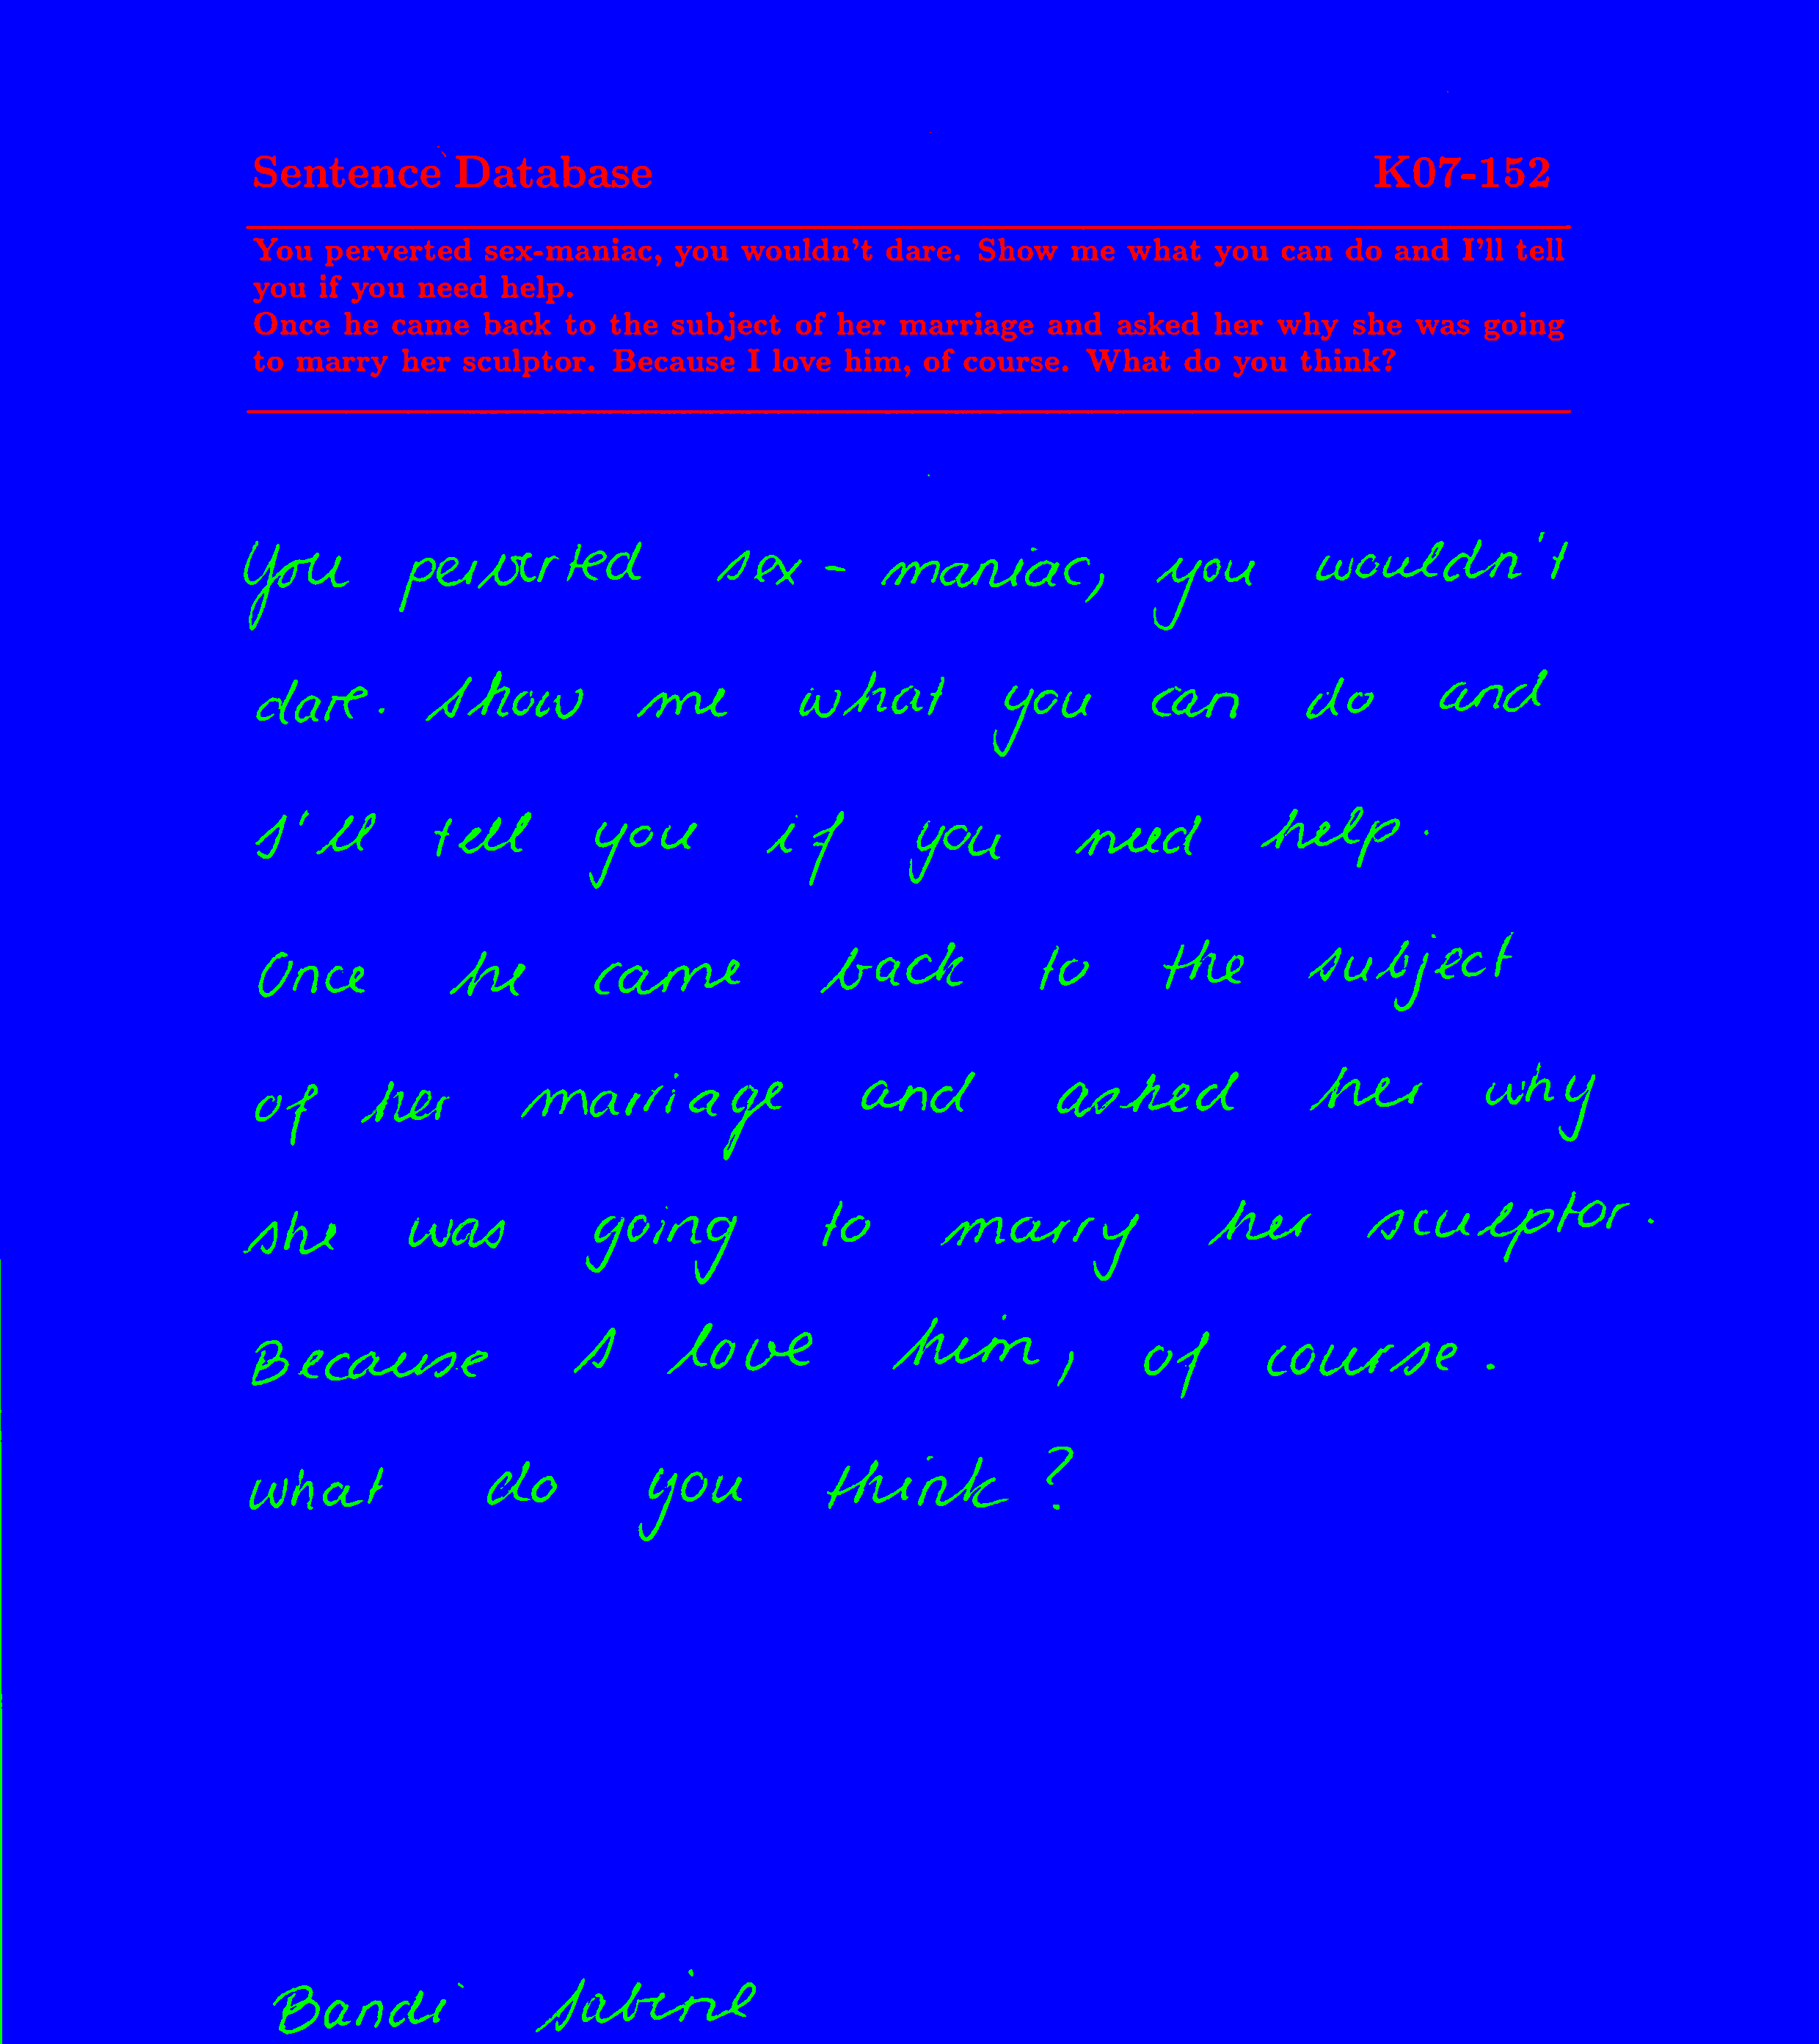 Sentence Database K07-152
You perverted sex-maniac, you wouldn't dare. Show me what you can do and I'll tell
you if you need help.
Once he came back to the subject of her marriage and asked her why she was going
to marry her sculptor. Because I love him, of course. What do you think?
You perverted sex - maniac, you wouldn't
dare. Show me what you can do and
I'll tell you if you need help.
Once he came back to the subject
of her marriage and asked her why
she was going to marry her sculptor.
Because I love him, of course.
what do you think?
Bandi Sabine